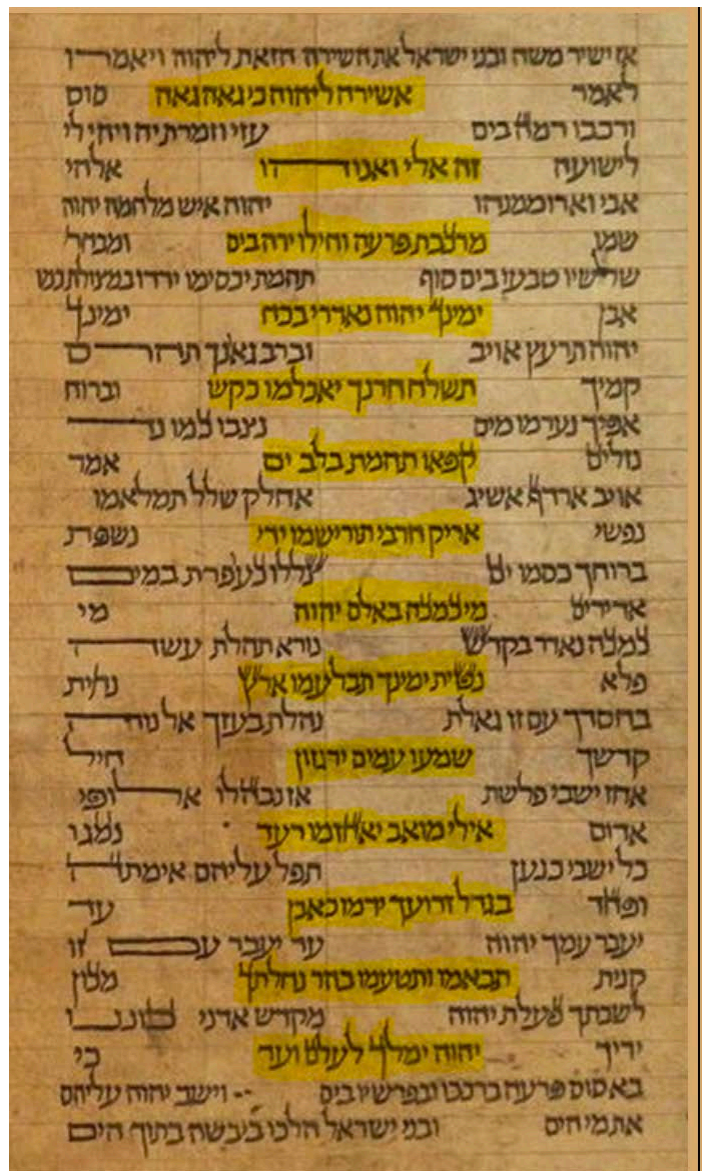 אז ישיר משה ובני ישראל את השירה הזאת ליהוה ויאמרו
לאמר אשירה ליהוה כי גאה גאה סוס
ורכבו רמה בים עזי וזמרת יה ויהי לי
לישועה זה אלי ואנוהו אלהי
אבי וארוממנהו יהוה איש מלחמה יהוה
שמו מרכבת פרעה וחילו ירה בים ומבחר
שלשיו טבעו בים סוף תהמת יכסימו ירדו במצולת כמו
אבן ימינך יהוה נאדרי בכח ימינך
יהוה תרעץ אויב וברב גאנך תהרס
קמיך תשלח חרנך יאכלמו כקש וברוח
אפיך נערמו מים נצבו כמו נד
נזלים קפאו תהמת בלב ים אמר
אויב ארדף אשיג אחלק שלל תמלאמו
נפשי אריק חרבי תורישמו ידי נשפת
ברוחך כסמו ים צללו כעפרת במים
אדירים מי כמכה באלם יהוה מי
כמכה נאדר בקדש נורא תהלת עשה
פלא נטית ימינך תבלעמו ארץ נחית
בחסדך עם זו גאלת נהלת בעזך אל נוה
קדשך שמעו עמים ירגזון חיל
אחז ישבי פלשת אז נבהלו אלופי
אדום אילי מואב יאחזמו רעד נמגו
כל ישבי כנען תפל עליהם אימתה
ופחד בגדל זרועך ידמו כאבן עד
יעבר עמך יהוה עד יעבר עם זו
קנית תבאמו ותטעמו בהר נחלתך מכון
לשבתך פעלת יהוה מקדש אדני כוננו
ידיך יהוה ימלך לעלם ועד כי
בא סוס פרעה ברכבו ובפרשיו בים וישב יהוה עליהם
את מי הים ובני ישראל הלכו ביבשה בתוך הים